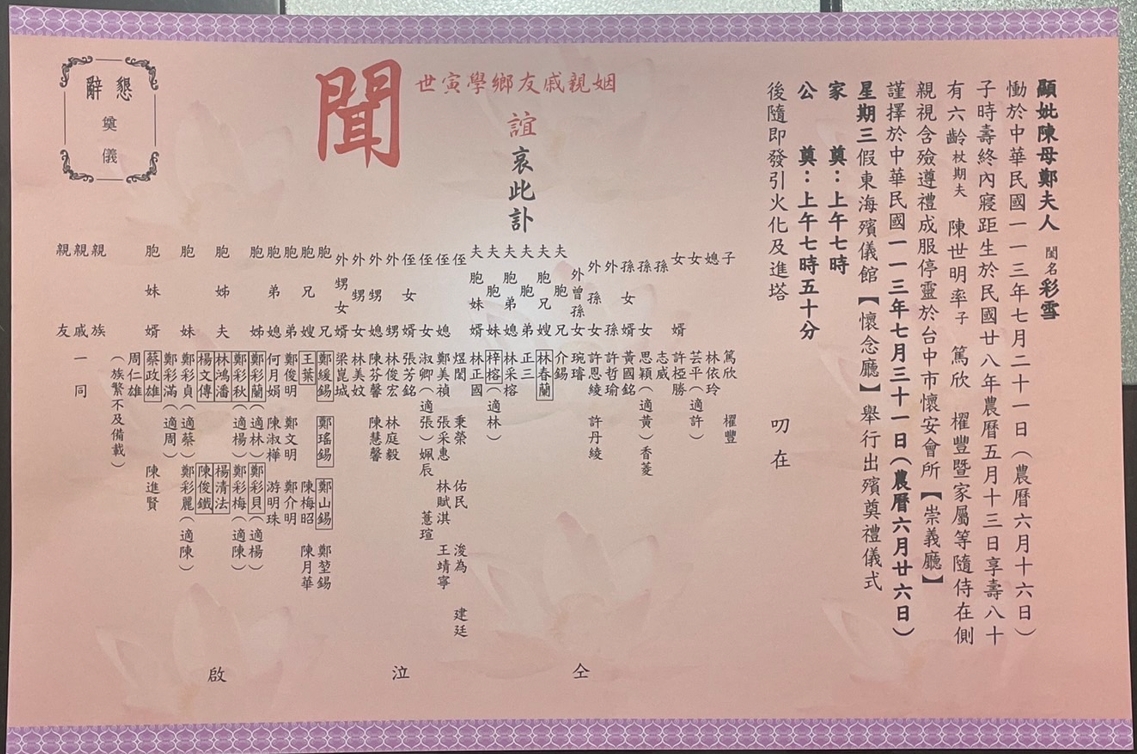 顯妣陳母鄭夫人 閨名彩雪
慟於中華民國一一三年七月二十一日(農曆六月十六日)
子時壽終內寢距生於民國廿八年農曆五月十三日享壽八十
有六齡杖期夫 陳世明率子 篤欣 櫂豐暨家屬等隨侍在側
親視含殮遵禮成服停靈於台中市懷安會所【崇義廳】
謹擇於中華民國一一三年七月三十一日(農曆六月廿六日)
星期三假東海殯儀館【懷念廳】舉行出殯奠禮儀式
家 奠:上午七時
公 奠:上午七時五十分
後隨即發引火化及進塔
叨在
姻親戚友鄉學寅世
誼
哀此訃
聞
子 篤欣 櫂豐
媳 林依玲
女 芸平(適許)
女婿 許極勝
孫 志威
孫女 思穎(適黃)香菱
孫女婿 黃國銘
外孫 許哲瑜
外孫女 許恩綾 許丹綾
外曾孫女 琬瑢
夫胞兄 介錫
夫胞兄嫂 林春蘭
夫胞弟 正三
夫胞弟媳 林采榕
夫胞妹 梓榕(適林)
夫胞妹婿 林正國
侄 煜閔 秉榮 佑民 浚為 建廷
侄媳 鄭美禎 張采惠 林賦淇 王靖寧
侄女 淑卿(適張)姵辰 薏瑄
侄女婿 張芳銘
外甥 林俊宏 林庭毅
外甥媳 陳芬馨 陳慧馨
外甥女 林美妏
外甥女婿 梁崑城
胞兄 鄭緩錫 鄭瑤錫 鄭山錫 鄭堃錫
胞兄嫂 王葉 陳梅昭 陳月華
胞弟 鄭俊明 鄭文明 鄭介明
胞弟媳 何月娟 陳淑樺 游明珠
胞姊 鄭彩蘭(適林)鄭彩貝(適楊)
鄭彩秋(適楊)鄭彩梅(適陳)
胞姊夫 林鴻潘 楊清法
楊文傳 陳俊鐵
胞妹 鄭彩貞(適蔡)鄭彩麗(適陳)
鄭彩滿(適周)
胞妹婿 蔡政雄 陳進賢
周仁雄
親族(族繁不及備載)
親戚
親友一同
仝
泣
啟
懇辭
奠儀